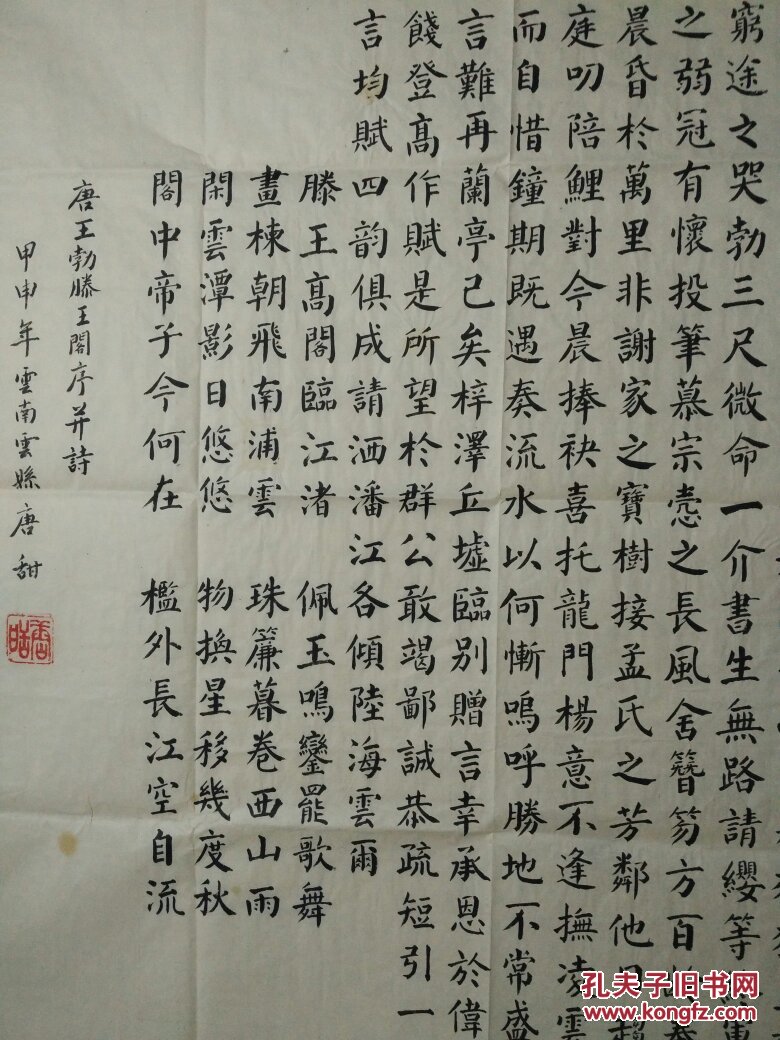 窮途之哭勃三尺微命一介書生無路請纓等
之弱冠有懷投筆慕宗愨之長風舍簪笏方百
晨昏於萬里非謝家之寶樹接孟氏之芳鄰他日趨
庭叨陪鯉對今晨捧袂喜托龍門楊意不逢撫凌雲
而自惜鐘期既遇奏流水以何慚嗚呼勝地不常盛
言難再蘭亭已矣梓澤丘墟臨別贈言幸承恩於偉
餞登高作賦是所望於群公敢竭鄙誠恭疏短引一
言均賦四韵俱成請洒潘江各傾陸海雲爾
滕王高閣臨江渚 佩玉鳴鑾罷歌舞
畫棟朝飛南浦雲 珠簾暮卷西山雨
閑雲潭影日悠悠 物換星移幾度秋
閣中帝子今何在 檻外長江空自流
唐王勃滕王閣序并詩
甲申年雲南雲縣唐甜
孔夫子旧书网
www.kongfz.com